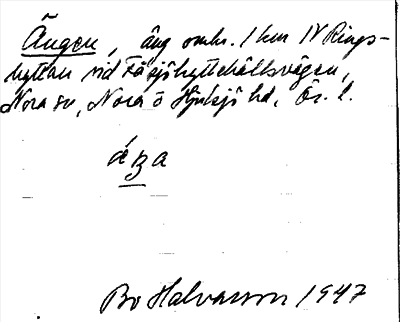 Ängen, äng omkr. 1 km NV Rings-
hyttan vid Fåsjöhyttehållsvägen,
Nora sn, Nora o Hjulsjö hd, Ör. l.
áʒa
Bo Halvarson 1947